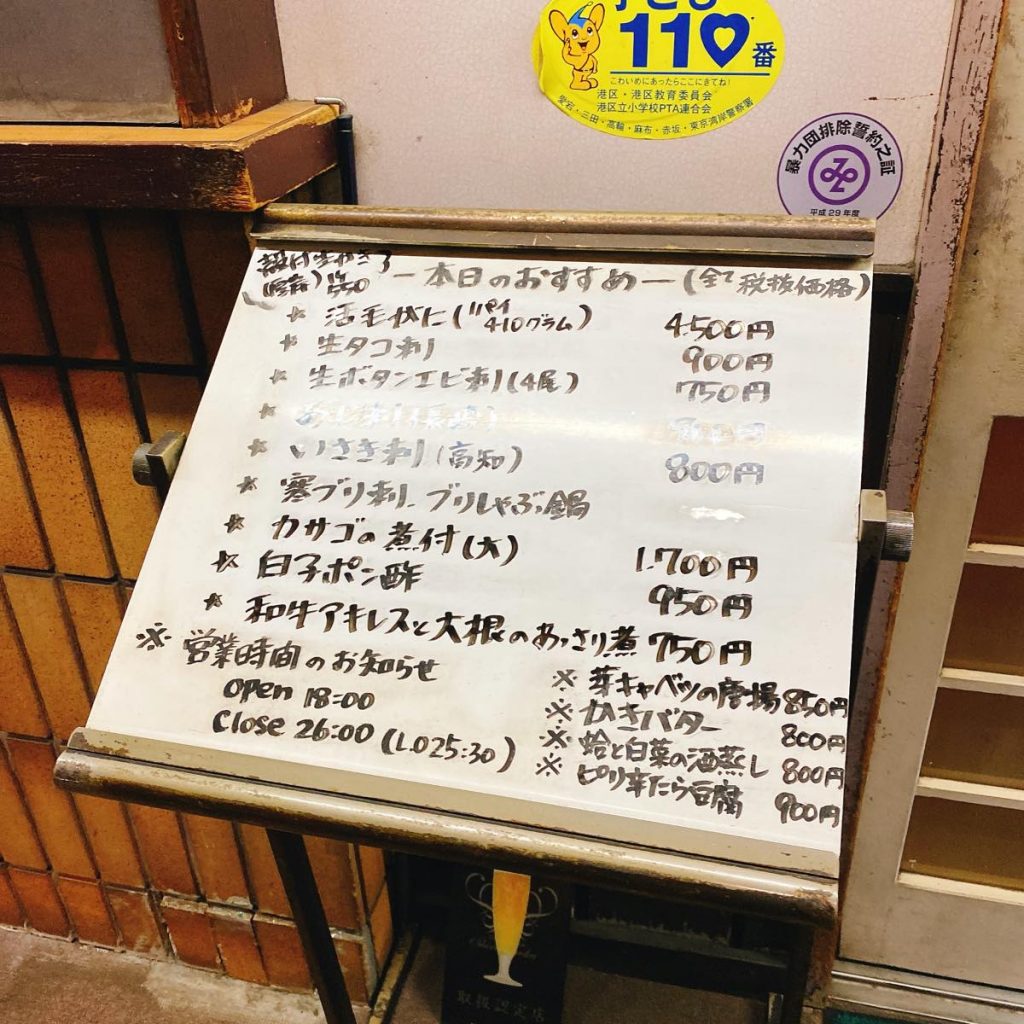 子ども
110番
こわいめにあったらここにきてね!
港区・港区教育委員会
港区立小学校PTA連合会
愛宕・三田・高輪・麻布・赤坂・東京湾岸警察署
暴力団排除誓約之証
平成29年度
殻付生かき
550
ー本日のおすすめー(全て税抜価格)
* 活毛がに(1パイ 410グラム) 4.500円
* 生タコ刺 900円
* 生ボタンエビ刺(4尾) 750円
* あじ刺(長崎)
* いさき刺(高知) 800円
* 寒ブリ刺、ブリしゃぶ鍋
* カサゴの煮付(大) 1.700円
* 白子ポン酢 950円
* 和牛アキレスと大根のあっさり煮 750円
※ 営業時間のお知らせ
open 18:00
close 26:00 (L.O25:30)
※ 芽キャベツの唐揚 850円
※ かきバター 800円
※ 蛤と白菜の酒蒸し 800円
※ ピリ辛たら豆腐 900円
取扱認定店